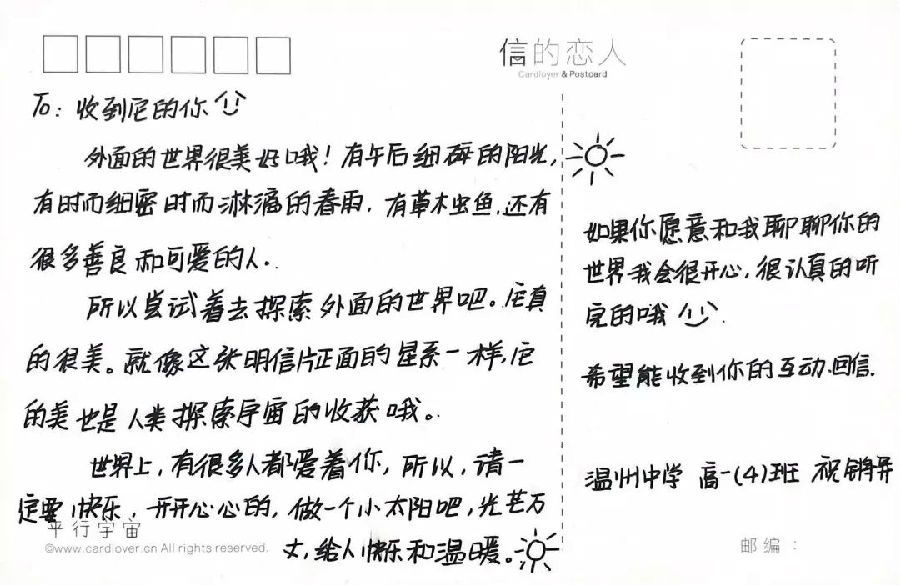 信的恋人
Cardlover & Postcard
To: 收到它的你
外面的世界很美好哦！有午后细碎的阳光，
有时而细密时而淋漓的春雨，有草木虫鱼，还有
很多善良和可爱的人..
所以尝试着去探索外面的世界吧。它真
的很美。就像这张明信片正面的星系一样，它
的美也是人类探索宇宙的收获哦。
世界上，有很多人都爱着你，所以，请一
定要快乐，开开心心的，做一个小太阳吧，光芒万
丈，给人快乐和温暖。
如果你愿意和我聊聊你的
世界我会很开心，很认真的听
完的哦
希望能收到你的互动、回信.
温州中学 高一(4)班 祝
平行宇宙
©www.cardlover.cn All rights reserved.
邮编：